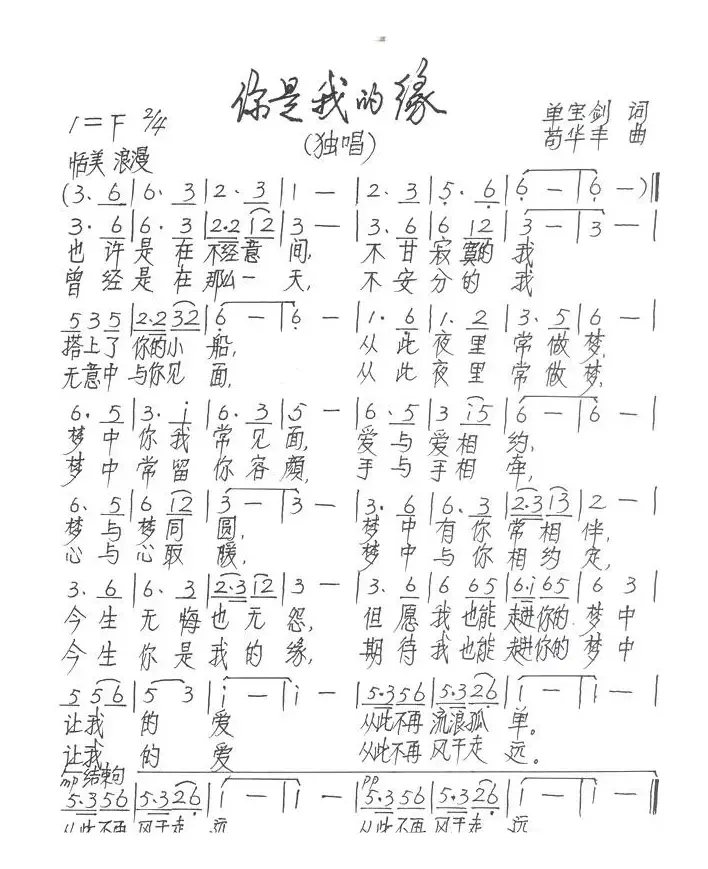 你是我的缘
(独唱)
1=F 2/4
单宝剑 词
苟华丰 曲
恬美 浪漫
(3. 6|6. 3|2. 3|1 —|2. 3|5. 6|6 —|6 —)‖
3. 6|6. 3|2.2 12|3 —|3. 6|6 12|3 —|3 —|
也许是在不经意间, 不甘寂寞的我
曾经是在那么一天, 不安分的我
5 3 5|2.2 32|6 —|6 —|1. 6|1. 2|3. 5|6 —|
搭上了你的小船, 从此夜里常做梦,
无意中与你见面, 从此夜里常做梦,
6. 5|3. i|6. 3|5 —|6. 5|3 i5|6 —|6 —|
梦中你我常见面, 爱与爱相约,
梦中常留你容颜, 手与手相牵,
6. 5|6 i2|3 —|3 —|3. 6|6. 3|2.3 i3|2 —|
梦与梦同圆, 梦中有你常相伴,
心与心取暖, 梦中与你相约定,
3. 6|6. 3|2.3 12|3 —|3. 6|6 65|6.i 65|6 3|
今生无悔也无怨, 但愿我也能走进你的梦中
今生你是我的缘, 期待我也能走进你的梦中
5 56|5 3|i —|i —|5.3 56|5.3 26|1 —|1 —|
让我的爱 从此不再流浪孤单。
让我的爱 从此不再风干走远。
mp 结束句 pp
5.3 56|5.3 26|i —|i —|5.3 56|5.3 26|1 —|1 —‖
从此不再 风干走 远 从此不再 风干走 远